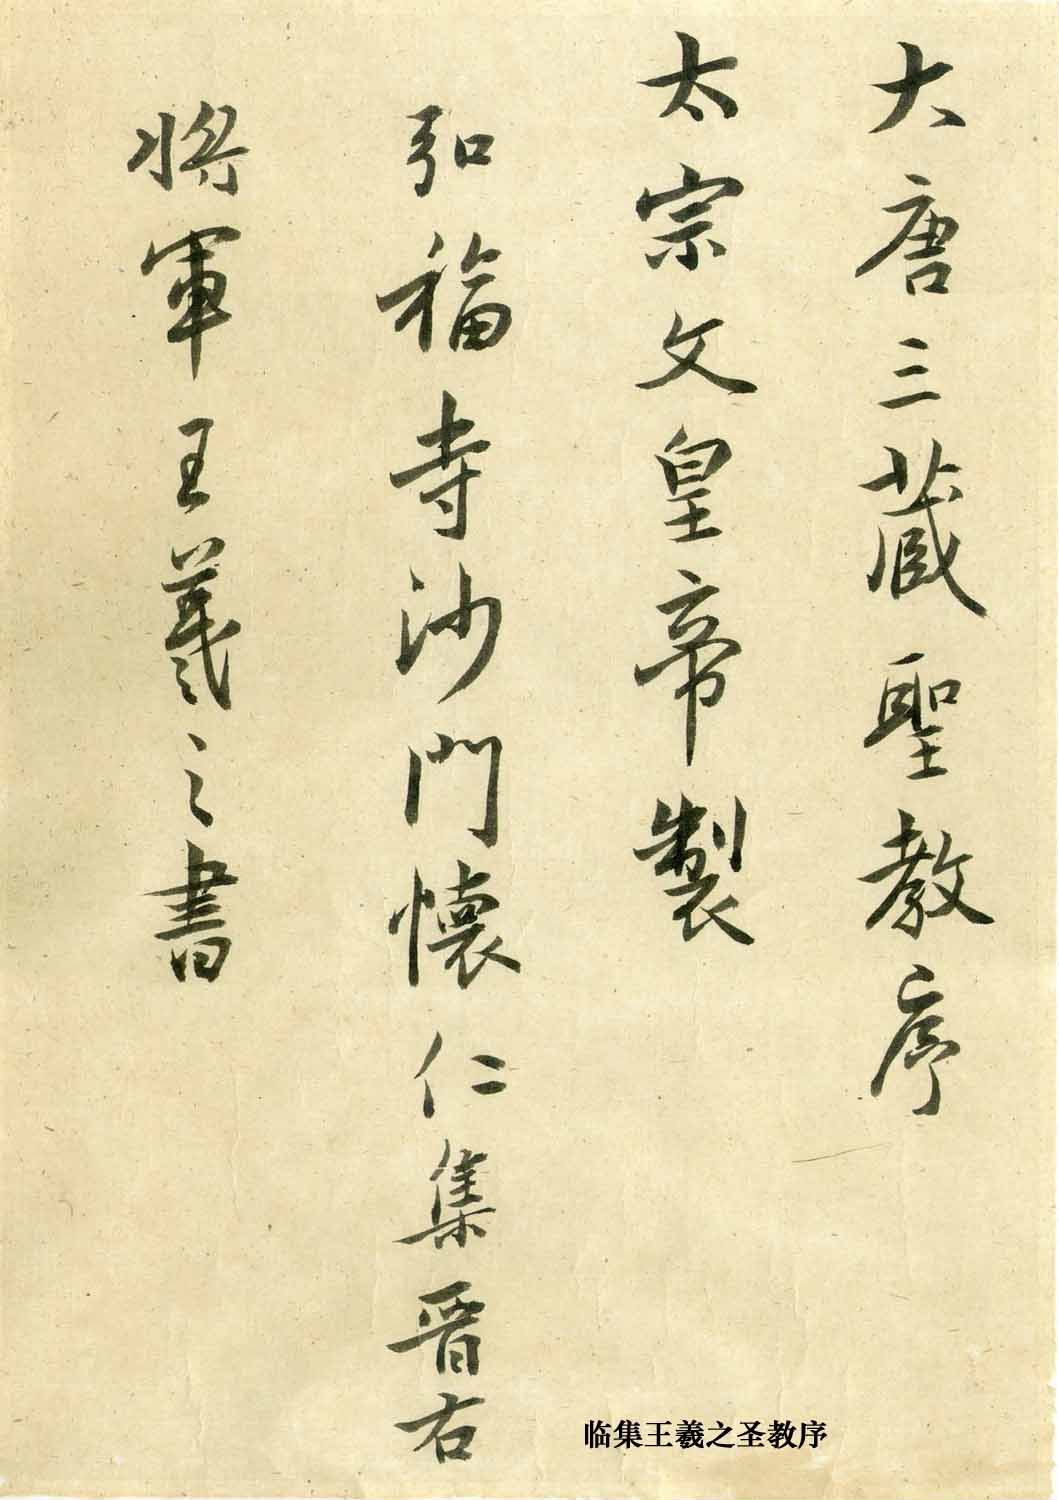 大唐三藏聖教序
太宗文皇帝製
弘福寺沙門懷仁集晋右
將軍王羲之書
临集王羲之圣教序